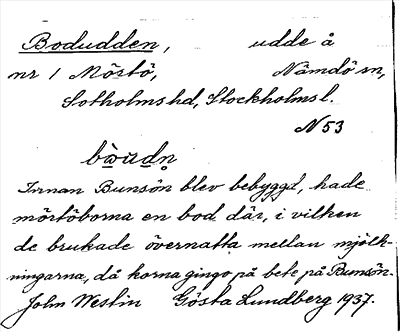 Bodudden, udde å
nr 1 Mörtö, Nämdö sn,
Sotholms hd, Stockholms l.
N 53
bὼùdn̥
Innan Bunsön blev bebyggd, hade
mörtöborna en bod där, i vilken
de brukade övernatta mellan mjölk-
ningarna, då korna gingo på bete på Bunsön.
John Westin Gösta Lundberg 1937.